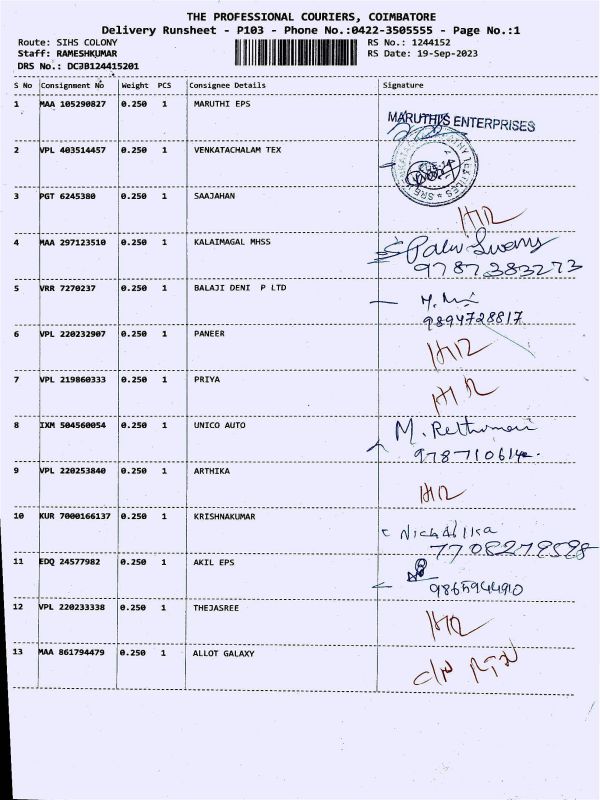 THE PROFESSIONAL COURIERS, COIMBATORE
Delivery Runsheet - P103 - Phone No.:0422-3505555 - Page No.:1
Route: SIHS COLONY RS No.: 1244152
Staff: RAMESHKUMAR RS Date: 19-Sep-2023
DRS No.: DCJB124415201
S No Consignment No Weight PCS Consignee Details Signature
1 MAA 105290827 0.250 1 MARUTHI EPS
MARUTHI'S ENTERPRISES
2 VPL 403514457 0.250 1 VENKATACHALAM TEX
3 PGT 6245380 0.250 1 SAAJAHAN
4 MAA 297123510 0.250 1 KALAIMAGAL MHSS
9787383273
5 VRR 7270237 0.250 1 BALAJI DENI P LTD
9894728817
6 VPL 220232907 0.250 1 PANEER
7 VPL 219860333 0.250 1 PRIYA
8 IXM 504560054 0.250 1 UNICO AUTO
9 VPL 220253840 0.250 1 ARTHIKA
10 KUR 7000166137 0.250 1 KRISHNAKUMAR
11 EDQ 24577982 0.250 1 AKIL EPS
9865944910
12 VPL 220233338 0.250 1 THEJASREE
13 MAA 861794479 0.250 1 ALLOT GALAXY